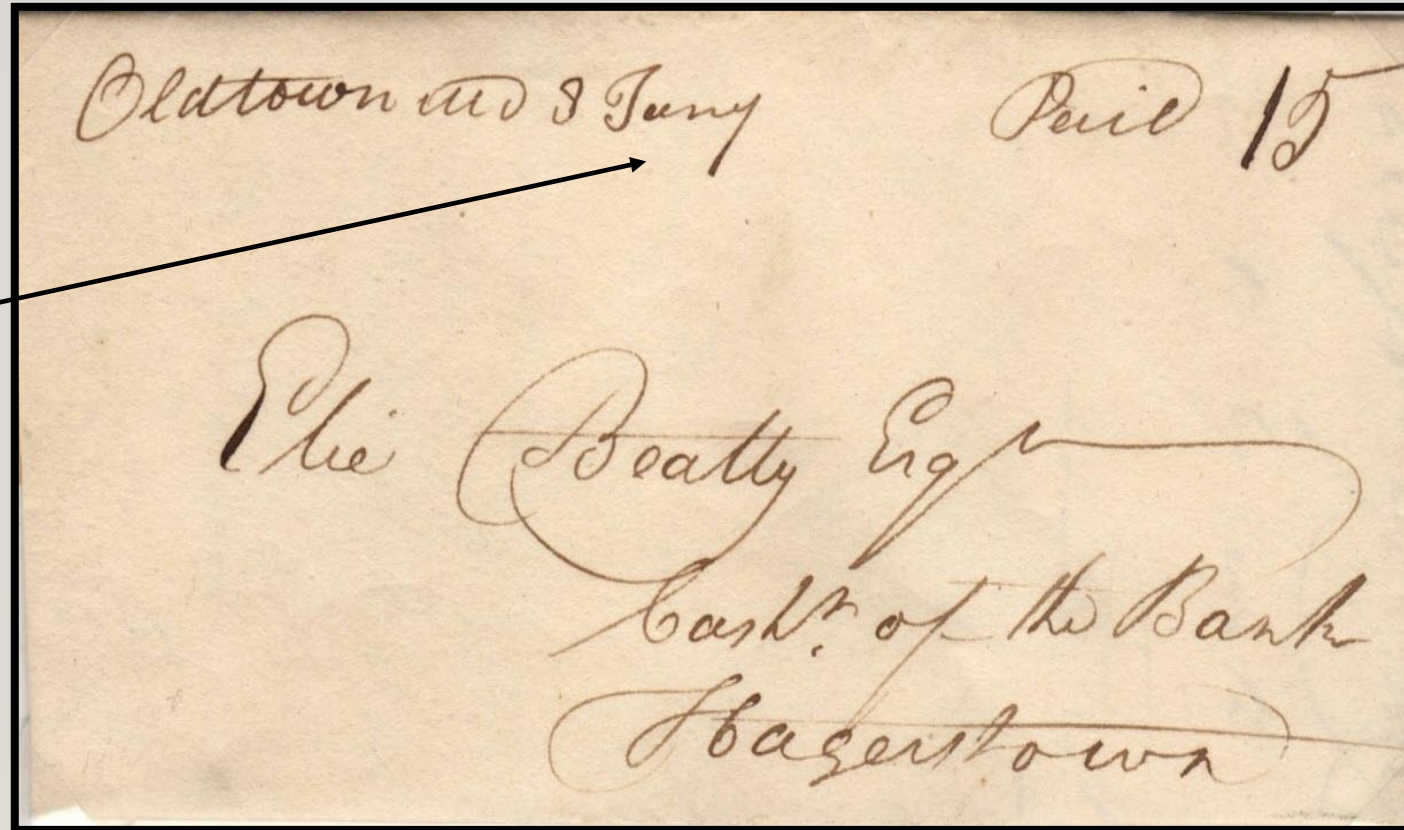 Oldtown Md 8 Jany Paid 15
Elie Beatty Esqr
Cashr. of the Bank
Hagerstown